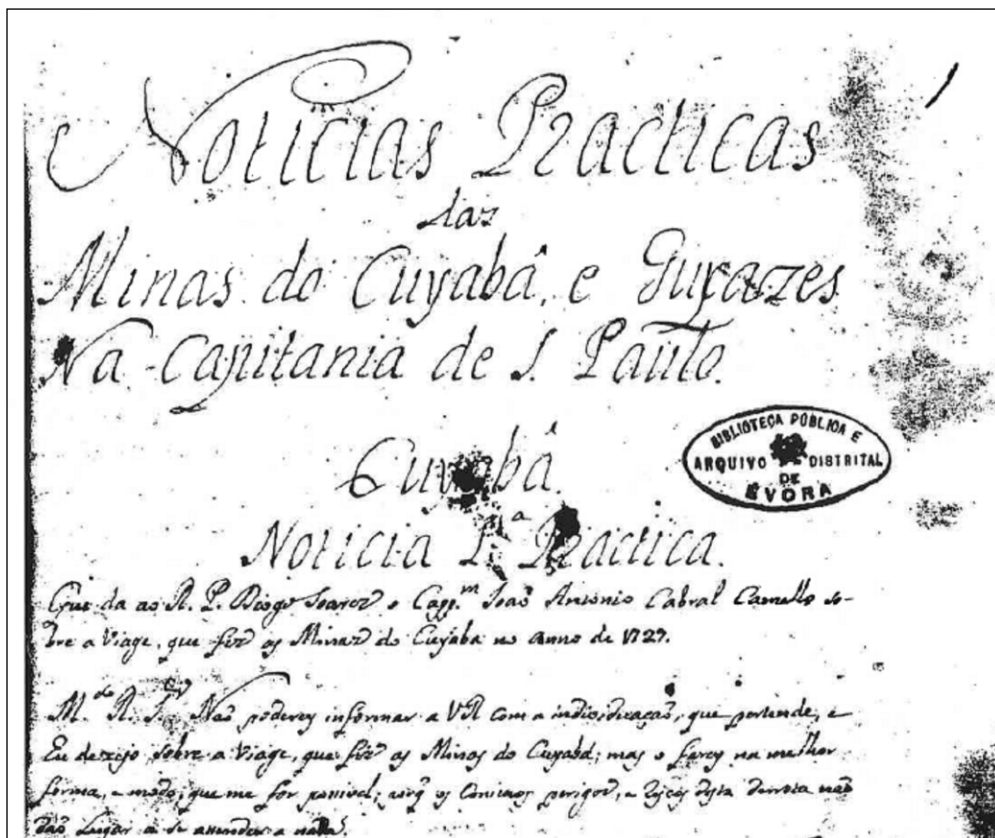 Noticias Practicas
das
Minas do Cuyabâ, e Guyazes
Na Capitania de S. Paulo.
Cuyabâ.
BIBLIOTECA PÚBLICA E
ARQUIVO DISTRITAL
DE
ÉVORA
Noticia 1.ª Practica.
Que da ao R. P. Diogo Soares o Capp.m Joaõ Antonio Cabral Camello so-
bre a Viage, que fez as Minas do Cuyabá no anno de 1727.
M.to R. Naõ poderey informar a VR com a que pertende, e
Eu dezejo sobre a Viage, que fiz as Minas do Cuyabá; mas o farey na melhor
forma, e modo, que me for possivel; os perigos, e desta derrota naõ
daõ Lugar a se attender a nada.